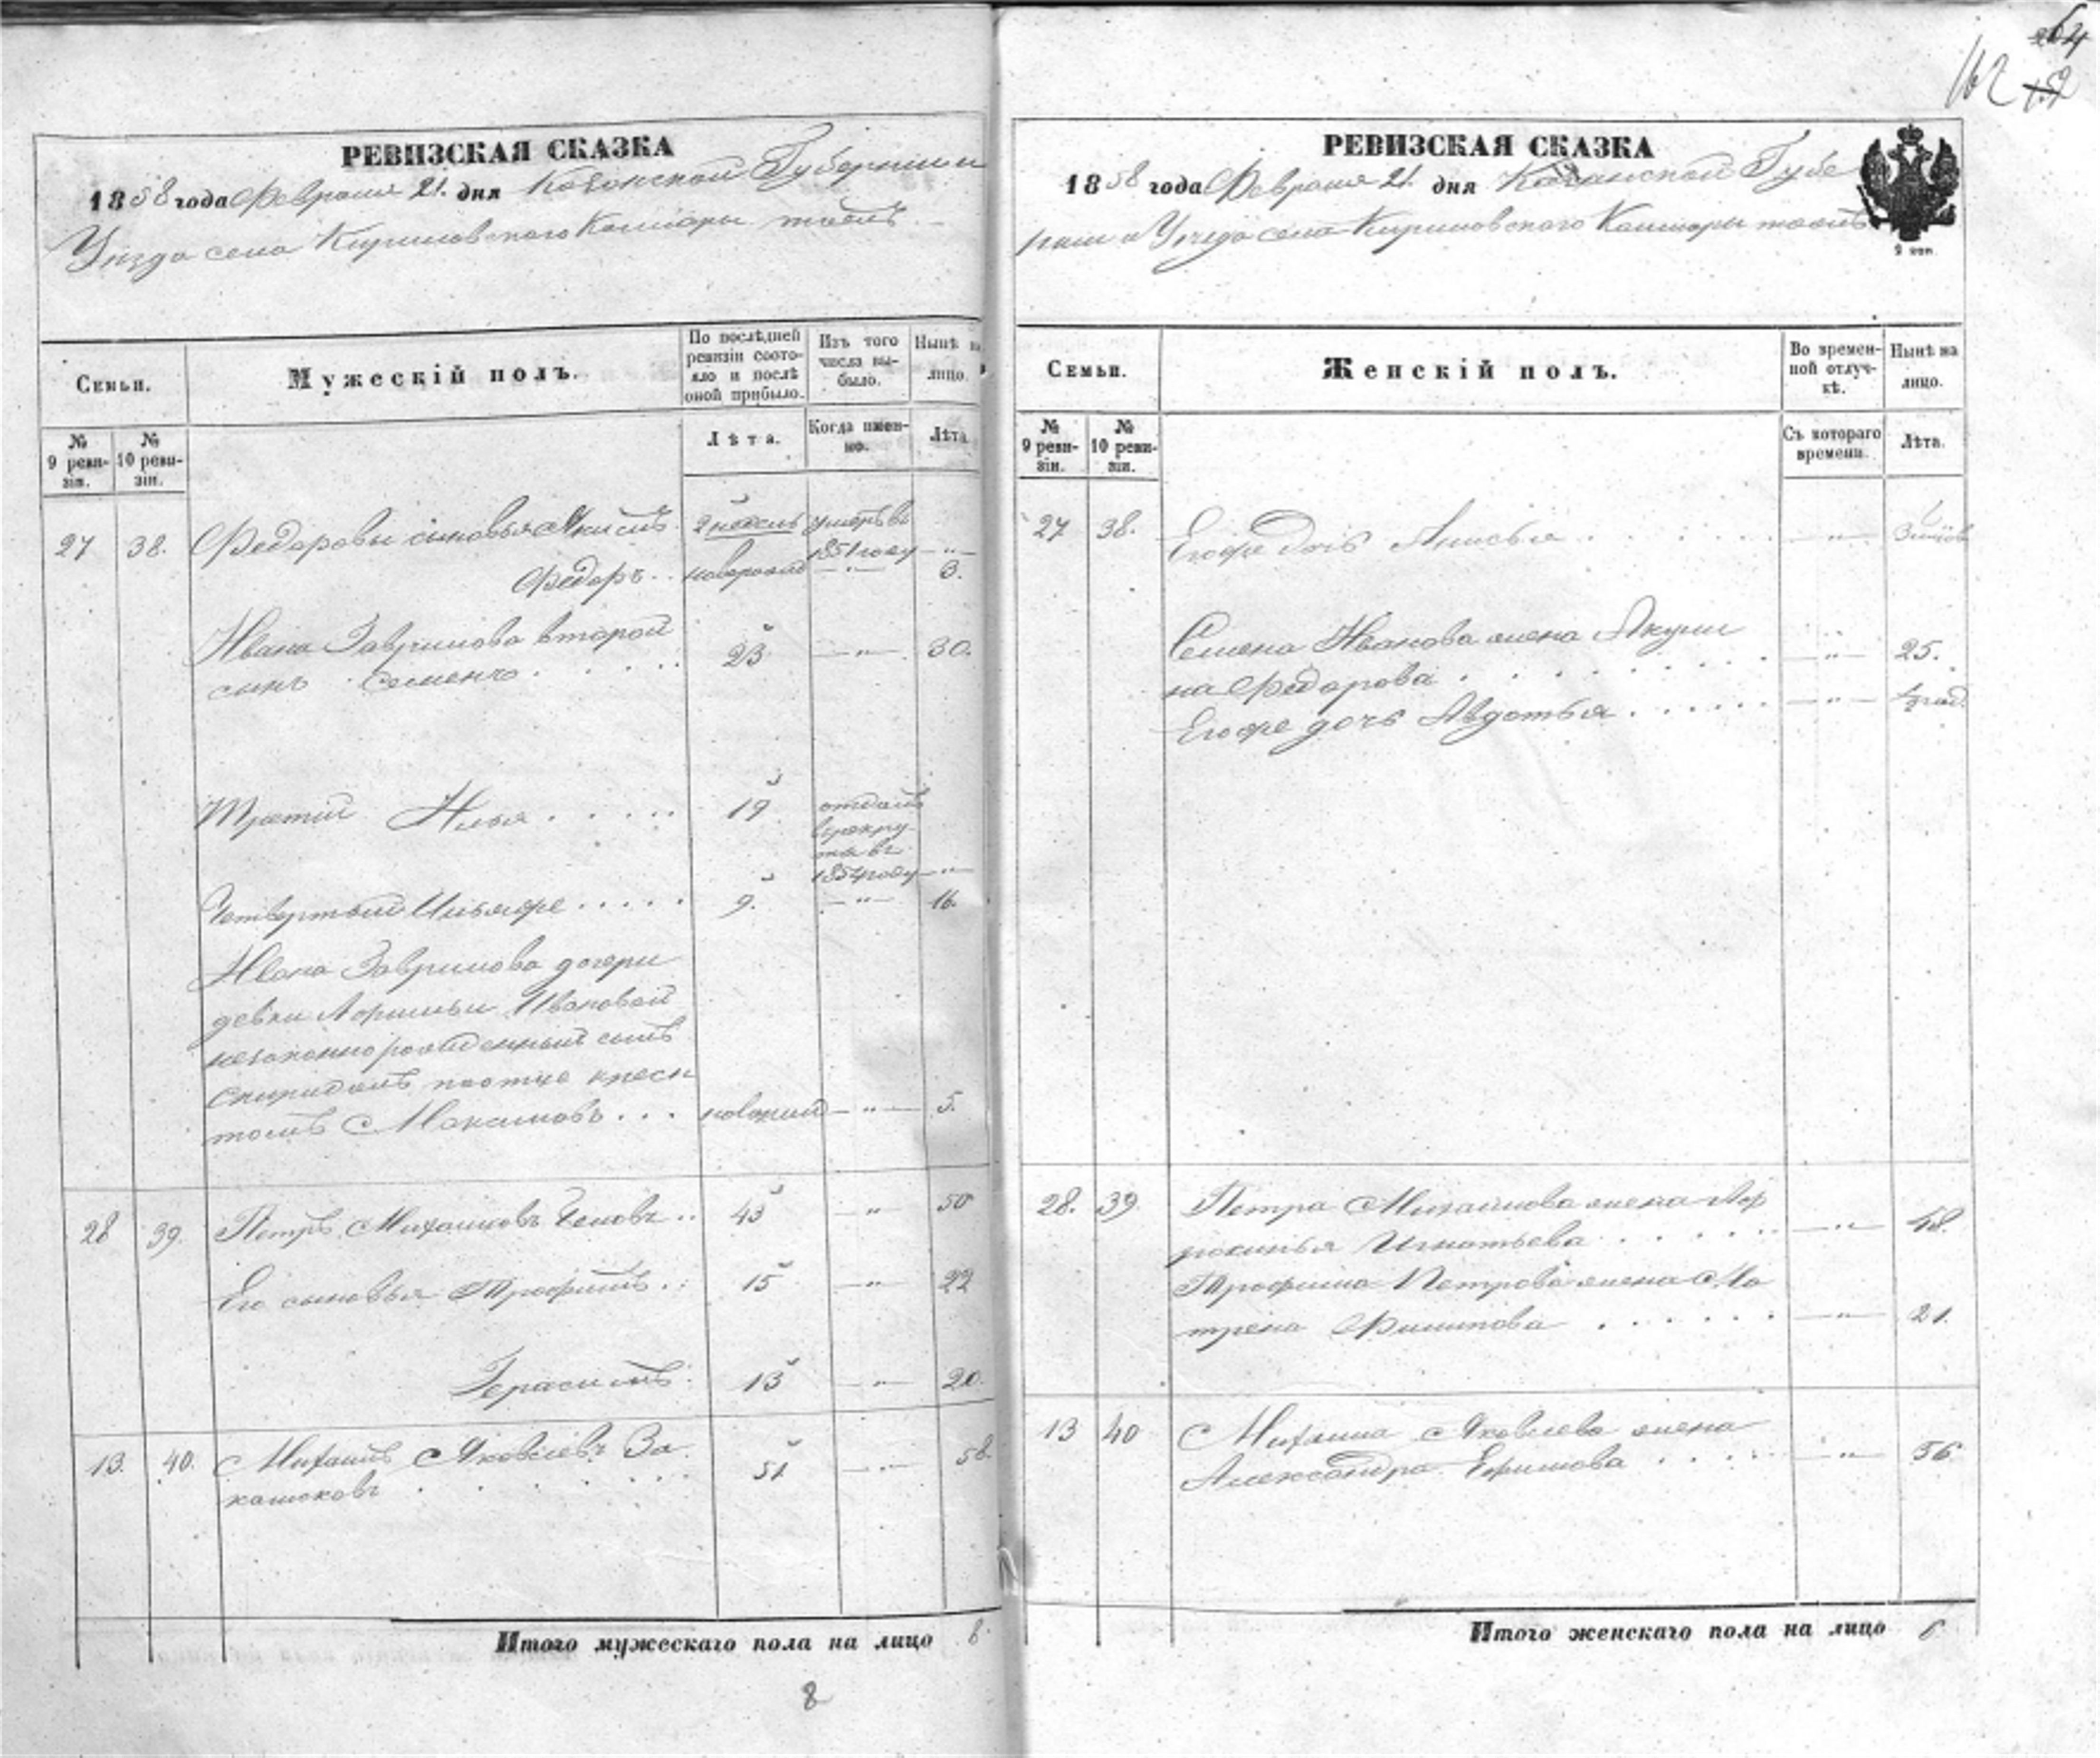 162
РЕВИЗСКАЯ СКАЗКА
1858 года Февраля 21. дня Казанской Губерніи и
Уѣзда села Кириловского Каймары тожъ
Семьи.
Мужескій полъ.
По послѣдней
ревизіи состо-
яло и послѣ
оной прибыло.
Изъ того
числа вы-
было.
Нынѣ на
лицо.
№
9 реви-
зіи.
№
10 реви-
зіи.
Лѣта.
Когда имен-
но.
Лѣта.
27 38. Федоровы сыновья 2 недель умеръ въ
1851 году
Федоръ .. 3.
Ивана Гаврилова второй
сынъ Семенъ 23 — " — 30.
Третій Илья 19 отданъ
в рекру-
та въ
1854 году — " —
Четвертый 9. — " — 16.
Ивана Гаврилова дочери
девки Ивановой
незаконнорожденный сынъ
Спиридонъ по отце крест
номъ Максимовъ ... — " — 5.
28 39. Петръ Михайловъ 43 — " — 50
Его сыновья Трофимъ .. 15 — " — 22
Герасимъ 13 — " — 20.
13. 40. Михаилъ Яковлевъ За
51 — " — 58.
Итого мужескаго пола на лицо 8
8
РЕВИЗСКАЯ СКАЗКА
1858 года Февраля 21. дня Казанской Губе
рніи и Уѣзда села Кириловского Каймары тожъ
2 коп.
Семьи.
Женскій полъ.
Во времен-
ной отлуч-
кѣ.
Нынѣ на
лицо.
№
9 реви-
зіи.
№
10 реви-
зіи.
Съ котораго
времени.
Лѣта.
27 38. Егоже дочь Анисья — " —
Семена Иванова жена Акули
на Федорова — " — 25.
Егоже дочь Авдотья — " — 1/2 год.
28. 39. Петра Михайлова жена
Игнатьева — " — 48.
Трофима Петрова жена Ма
трена Филипова — " — 21.
13 40 Михаила Яковлева жена
Александра Ефимова — " — 56
Итого женскаго пола на лицо 6